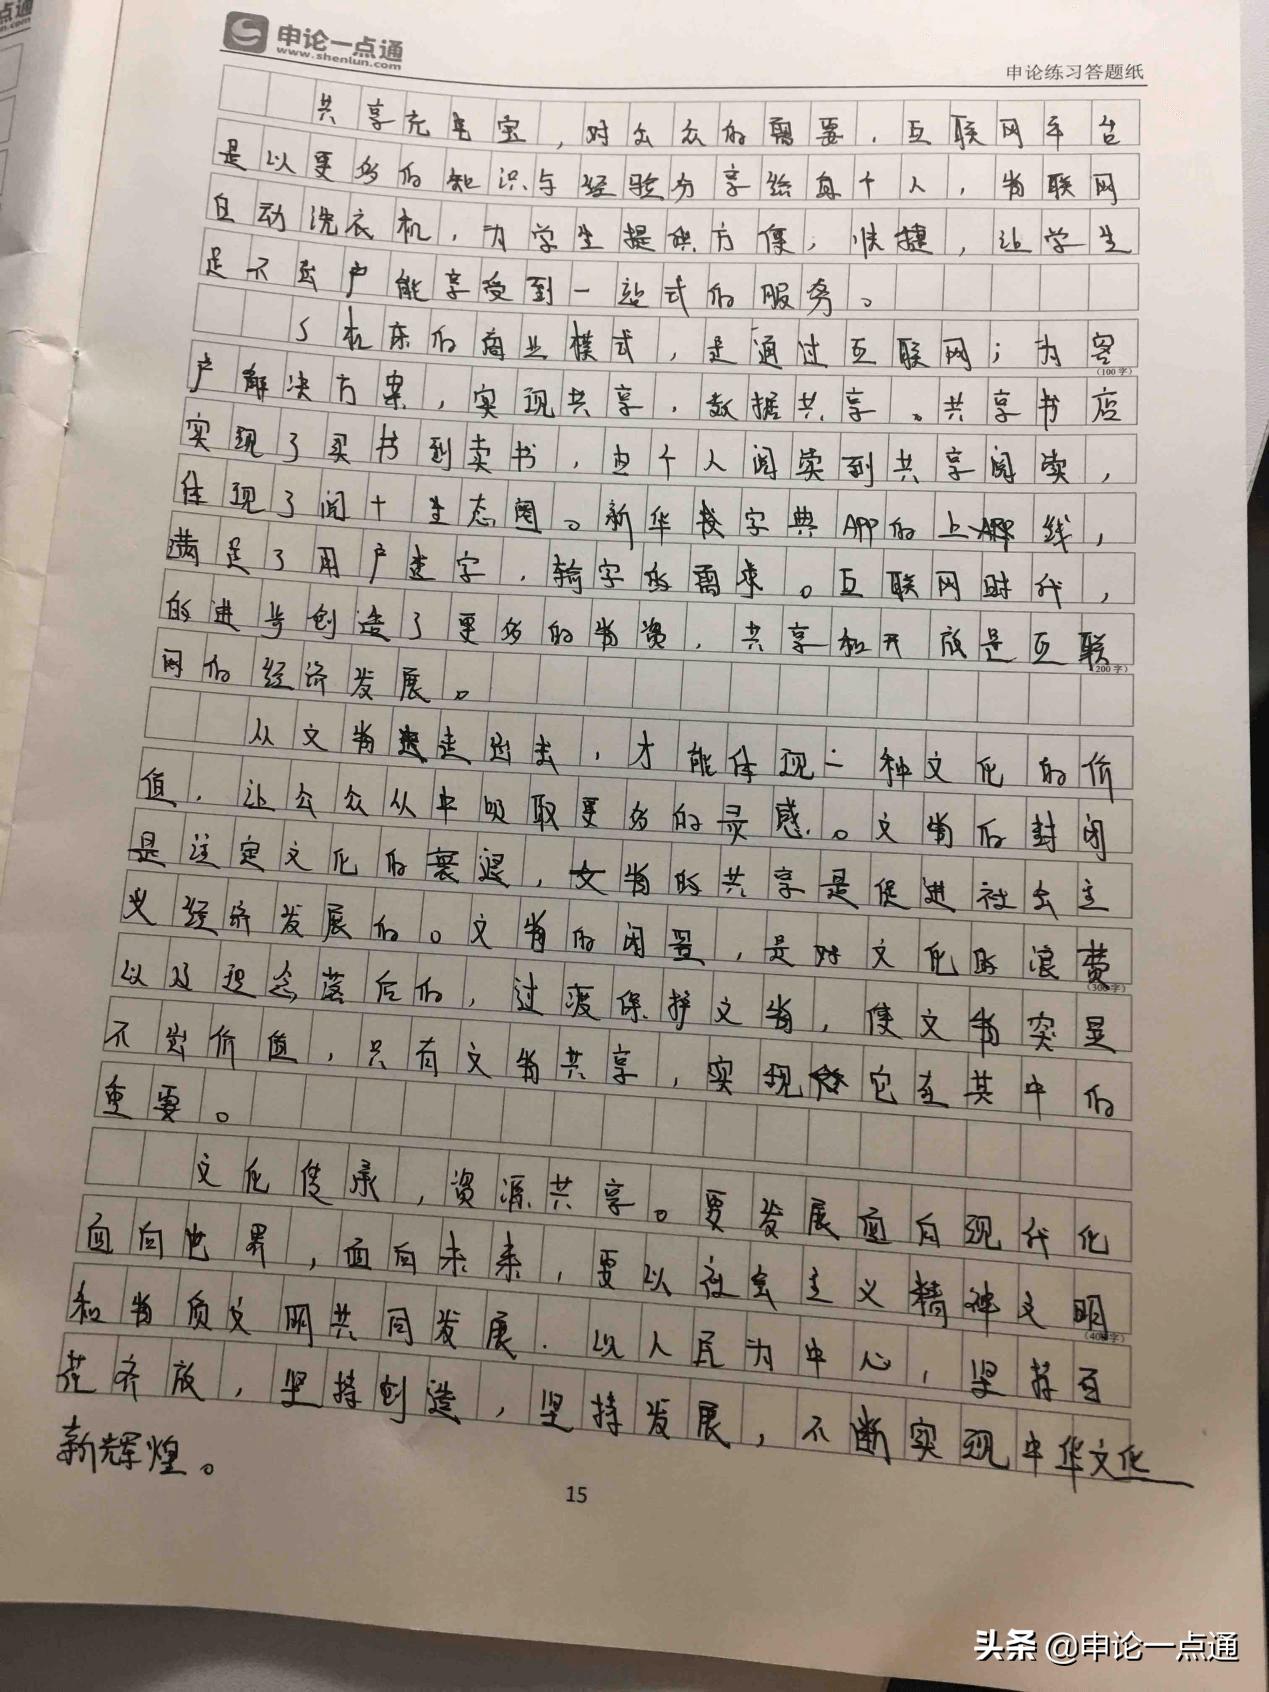 点通
申论一点通
www.shenlun.com
申论练习答题纸
共享充电宝，对公众的需要，互联网平台
是以更多的知识与经验分享给每个人，物联网
自动洗衣机，为学生提供方便，快捷，让学生
足不出户能享受到一站式的服务。
机床的商业模式，是通过互联网；为客
(100字)
户解决方案，实现共享，数据共享。共享书店
实现了买书到卖书，由个人阅读到共享阅读，
体现了阅十生态圈。新华字典APP的上线，
满足了用户查字，输字的需求。互联网时代，
的进步创造了更多的物资，共享和开放是互联
(200字)
网的经济发展。
从文物走出去，才能体现一种文化的价
值，让公众从中吸取更多的灵感。文物的封闭
是注定文化的衰退，文物的共享是促进社会主
义经济发展的。文物的闲置，是对文化的浪费
(300字)
以及理念落后的，过度保护文物，使文物突显
不出价值，只有文物共享，实现它在其中的
重要。
文化传承，资源共享。要发展面向现代化
面向世界，面向未来，要以社会主义精神文明
和物质文明共同发展．以人民为中心，坚持百
(400字)
花齐放，坚持创造，坚持发展，不断实现中华文化
新辉煌。
15
头条 @申论一点通